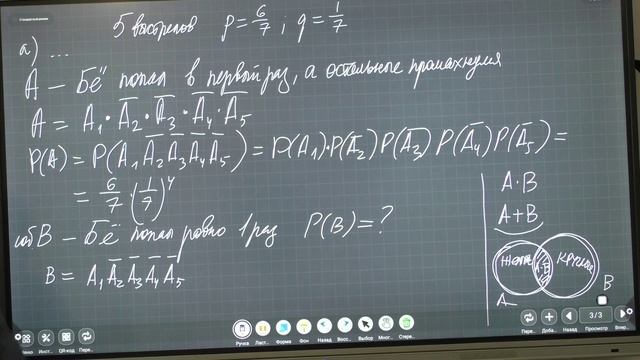 5 выстрелов p = 6/7 ; q = 1/7
а) ...
A – Бё попал в первый раз, а остальные промахнулся
A = A₁·A̅₂·A̅₃·A̅₄·A̅₅
P(A) = P(A₁A̅₂A̅₃A̅₄A̅₅) = P(A₁)·P(A̅₂)P(A̅₃)P(A̅₄)P(A̅₅) =
= 6/7·(1/7)⁴
соб B – Бё попал ровно 1 раз P(B) = ?
B = A₁A̅₂A̅₃A̅₄A̅₅
A·B
A+B
A·B
A
B
Ручка
Фон
Назад
Выбор
3/3
QR-код
Назад